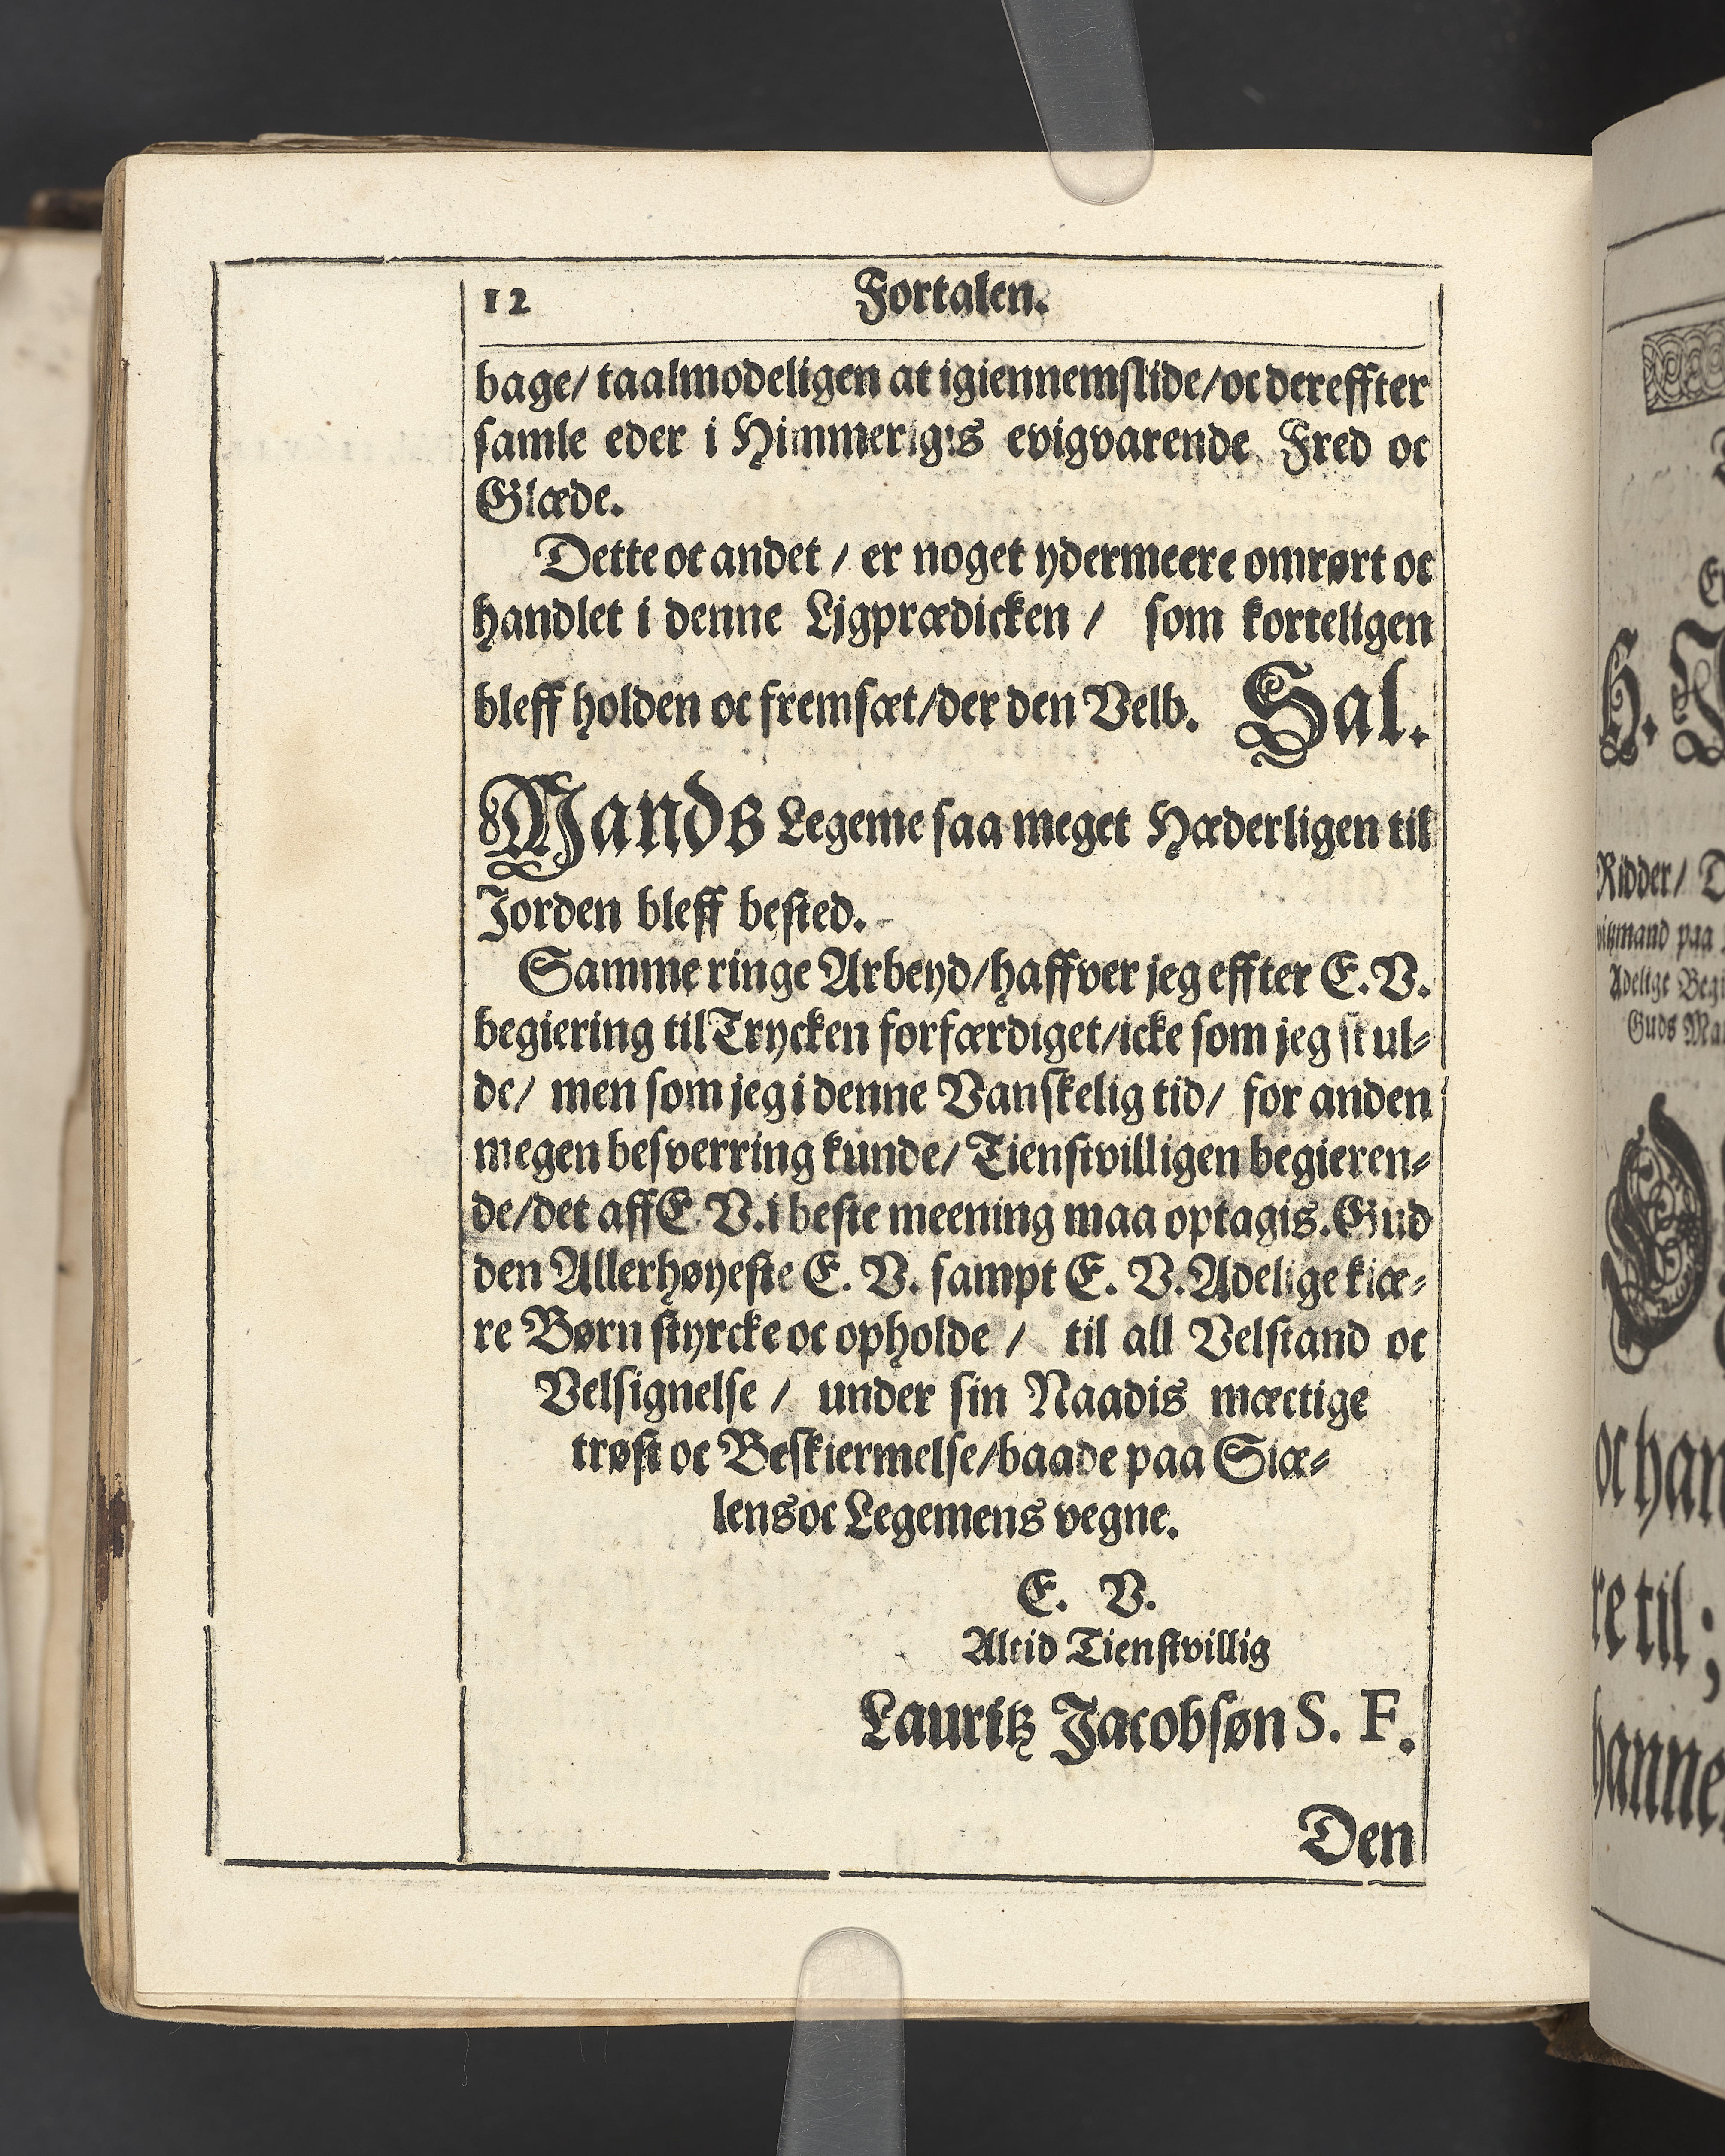 12 Fortalen.
bage/ taalmodeligen at igiennemslide/ oc dereffter
samle eder i Himmerigis evigvarende Fred oc
Glæde.
Dette oc andet / er noget ydermeere omrørt oc
handlet i denne Ligprædicken / som korteligen
bleff holden oc fremsæt/ der den Velb. Sal.
Mands Legeme saa meget Hæderligen til
Jorden bleff bested.
Samme ringe Arbeyd/ haffver jeg effter E. V.
begiering til Trycken forfærdiget/ icke som jeg skul-
de/ men som jeg i denne Vanskelig tid/ for anden
megen besverring kunde/ Tienstvilligen begieren-
de/ det aff E. V. i beste meening maa optagis. Gud
den Allerhøyeste E. V. sampt E. V. Adelige kiæ-
re Børn styrcke oc opholde / til all Velstand oc
Velsignelse / under sin Naadis mæctige
trøst oc Beskiermelse/ baade paa Siæ-
lens oc Legemens vegne.
E. V.
Altid Tienstvillig
Lauritz Jacobsøn S. F.
Den
Ridder/
oc han
re til ;